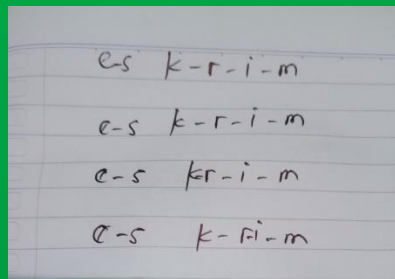 e-s k-r-i-m
e-s k-r-i-m
e-s kr-i-m
e-s k-ri-m